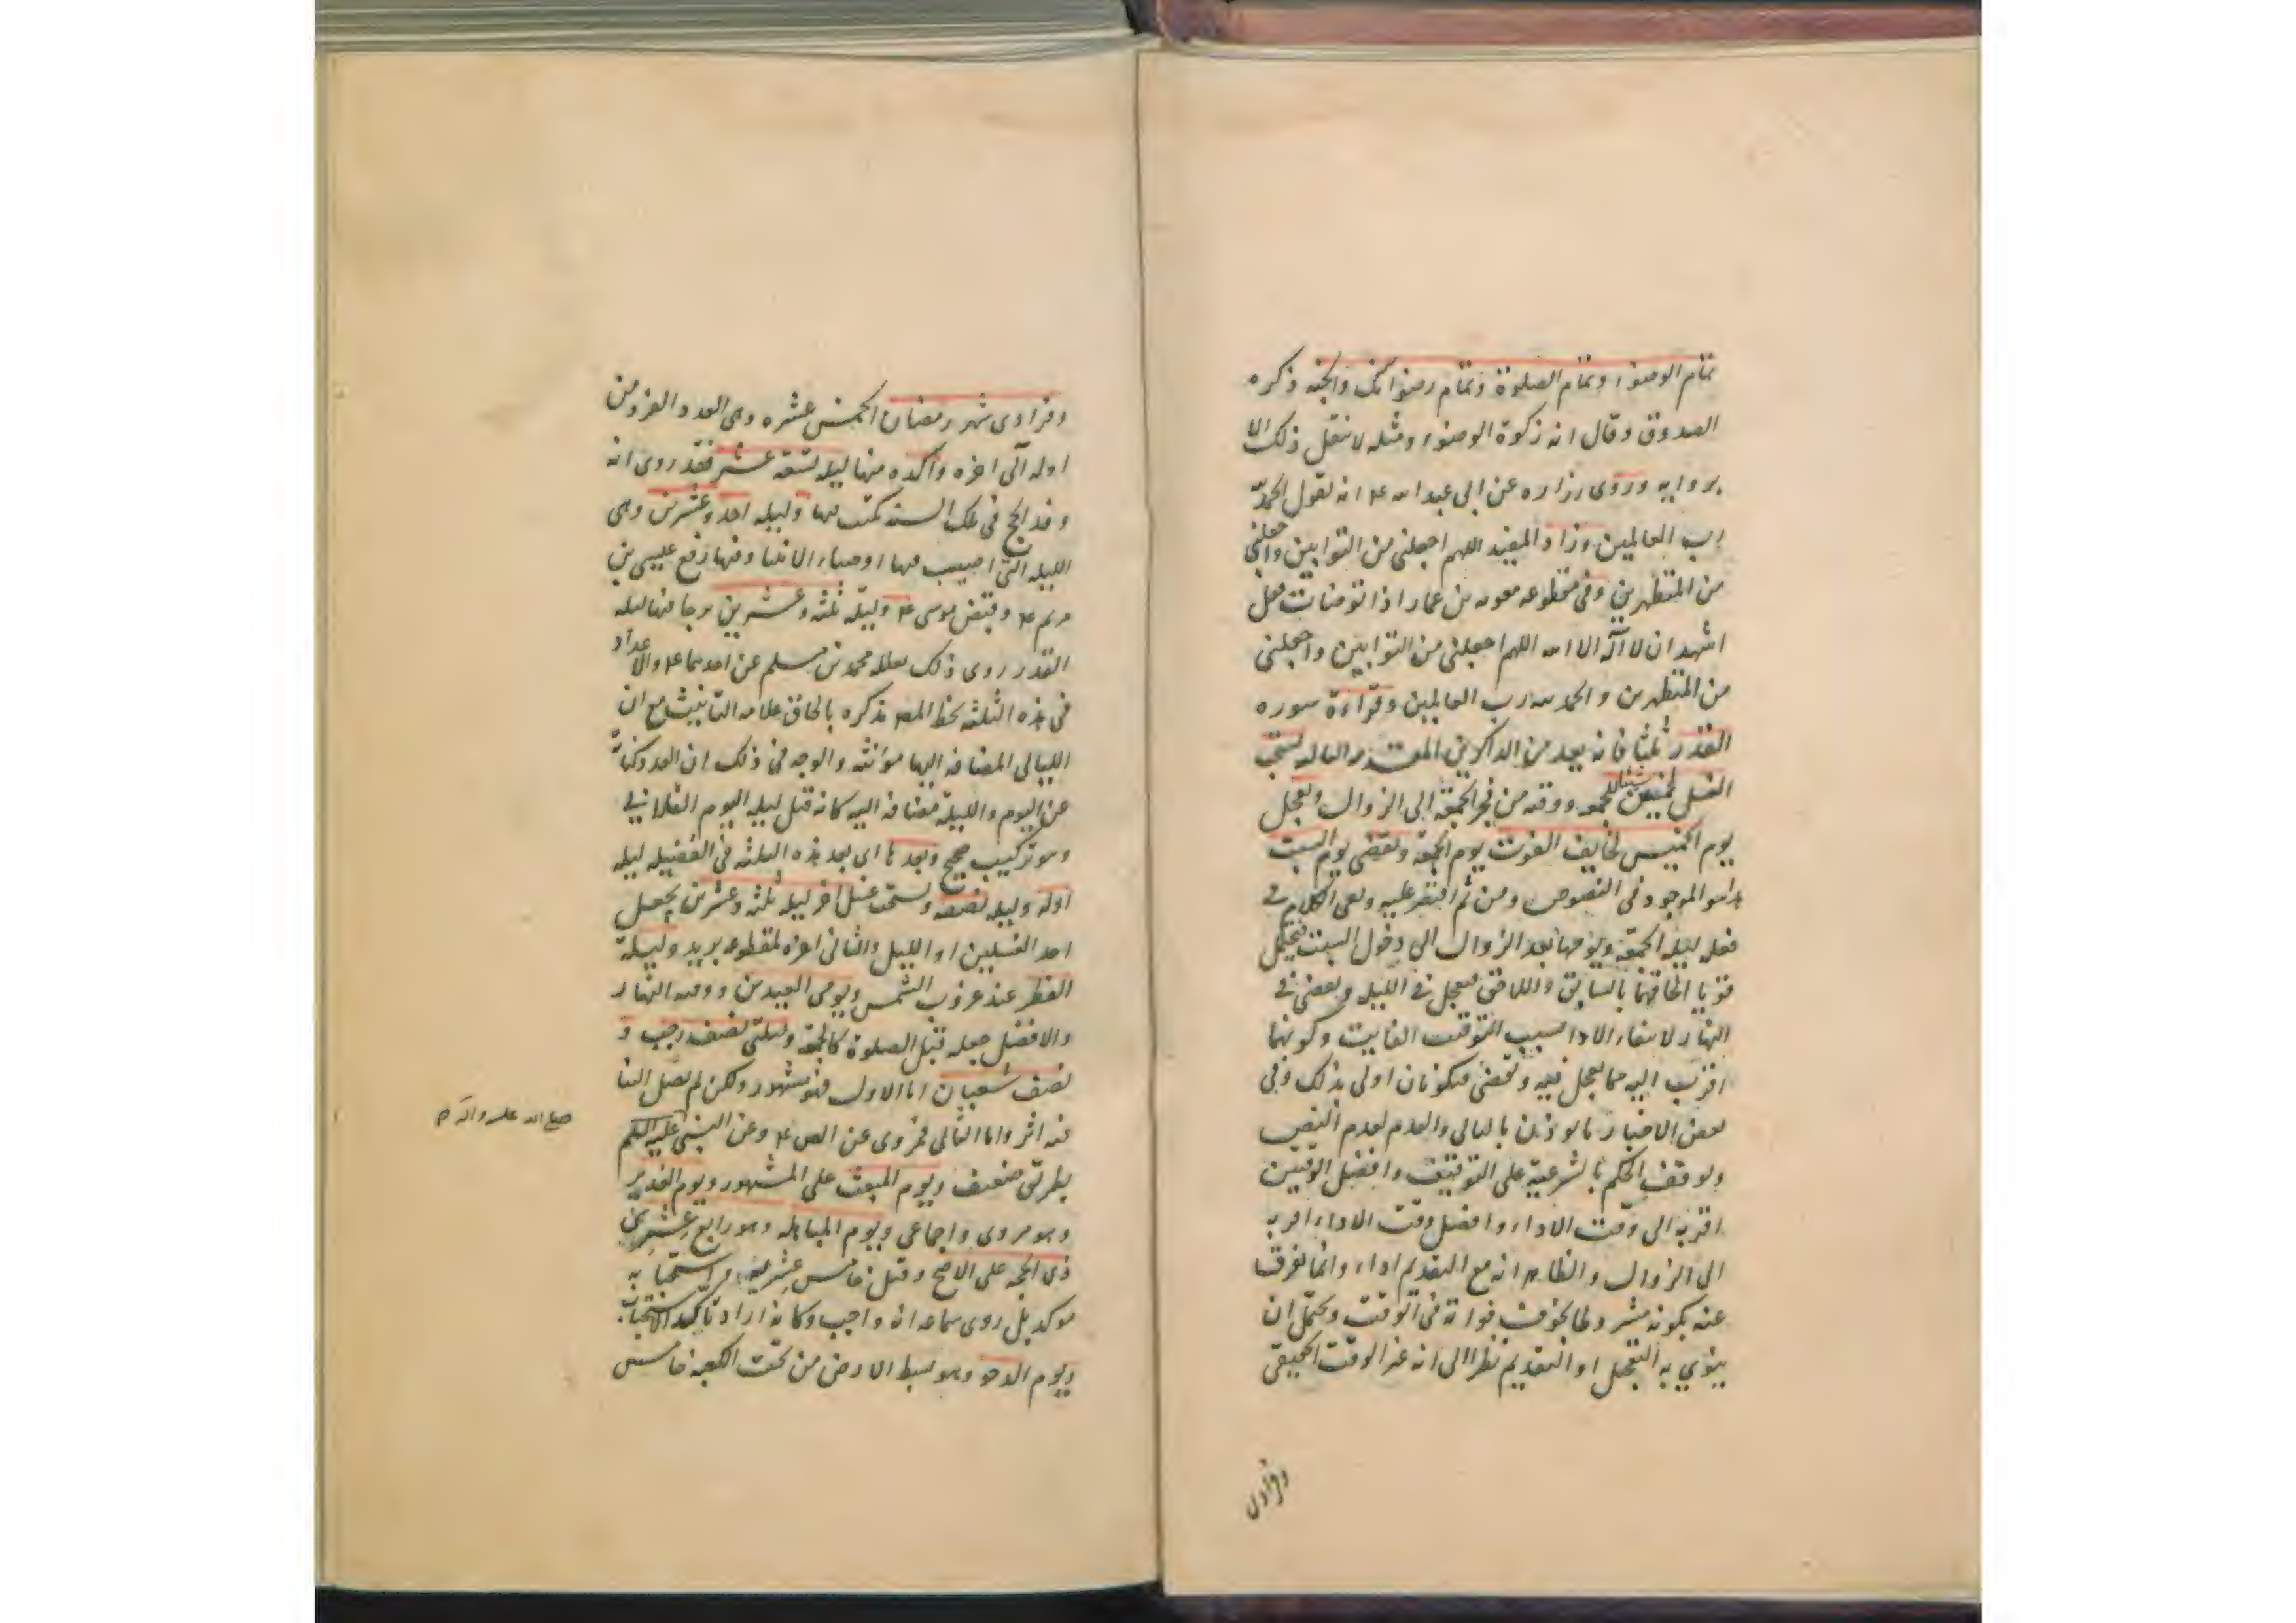 تمام الوضوء وتمام الصلوة وتمام رضوانك والجنه ذكره
الصدوق وقال انه زكوة الوضوء ومثله لا ينقل ذلك الا
بروايه وروى زراره عن ابى عبد الله ع انه يقول الحمد لله
رب العالمين وزاد المفيد اللهم اجعلنى من التوابين واجعلنى
من المتطهرين وفى مقطوعه معويه بن عمار اذا توضات فقل
اشهد ان لا اله الا الله اللهم اجعلنى من التوابين واجعلنى
من المتطهرين والحمد لله رب العالمين وقراءة سوره
القدر ثلثا فانه يعد من الذاكرين يستحب
الغسل لخمسين شيئا للجمعه ووقته من فجر الجمعة الى الزوال ويعجل
يوم الخميس لخايف الفوت يوم الجمعة ويقضى يوم السبت
هذا هو الموجود فى النصوص ومن ثم اقتصر عليه وبقى الكلام فى
فعله ليله الجمعة ويومها بعد الزوال الى دخول السبت فيحتمل
قويا الحاقهما بالسابق واللاحق فيعجل فى الليله ويقضى فى
النهار لانتفاء الاداء بسبب التوقيت الفايت وكونهما
اقرب اليه مما يعجل فيه ويقضى فيكونان اولى بذلك وفى
بعض الاخبار ما يوذن بالتالى والعدم لعدم النص
وتوقف الحكم بالشرعية على التوقيف وافضل الوقتين
اقربه الى وقت الاداء وافضل وقت الاداء اقربه
الى الزوال والظاهر انه مع التقديم اداء وانما يفرق
عنه بكونه مشروطا بخوف فواته فى الوقت ويحتمل ان
ينوي به التعجيل او التقديم نظرا الى انه غير الوقت الحقيقى
وفرادى
وفرادى شهر رمضان الخمس عشره وهى العدد الفرد من
اوله الى اخره واكده منها ليله تسعة عشر فقد روى انه
وفد الحج فى تلك السنه يكتب فيها وليله احد وعشرين وهى
الليله التى اصيب فيها اوصياء الانبيا وفيها رفع عيسى بن
مريم ع وقبض موسى ع وليلة ثلثه وعشرين يرجا فيها ليله
القدر روى ذلك محمد بن مسلم عن احدهما ع والاعداد
فى هذه الثلثه بخط المصه مذكره بالحاق علامه التانيث مع ان
الليالى المضافه اليها مؤنثه والوجه فى ذلك ان العدد كناية
عن اليوم والليلة مضافه اليه كانه قيل ليله اليوم الفلانى
وهو تركيب صحيح وبعدها اى بعد هذه الثلثه فى الفضيله ليله
اوله وليله نصفه ويستحب غسل اخر ليله ثلثه وعشرين يجعل
احد الغسلين اول الليل والثانى اخره لمقطوعه بريد وليلة
الفطر عند غروب الشمس ويومى العيدين ووقته النهار
والافضل جعله قبل الصلوة كالجمعة وليلتى نصف رجب و
نصف شعبان اما الاول فهو مشهور ولكن لم يصل الينا
فيه اثر واما الثانى فمروى عن الص ع وعن النبى عليه السلم
بطريق ضعيف ويوم المبعث على المشهور ويوم الغدير
وهو مروى واجماعى ويوم المباهله وهو رابع عشرين
ذى الحجه على الاصح وقيل خامس عشرينه واستحبابه
موكد بل روى سماعه انه واجب وكانه اراد تاكيد الاستحباب
ويوم الدحو وهو بسط الارض من تحت الكعبه خامس
صلى الله عليه واله م